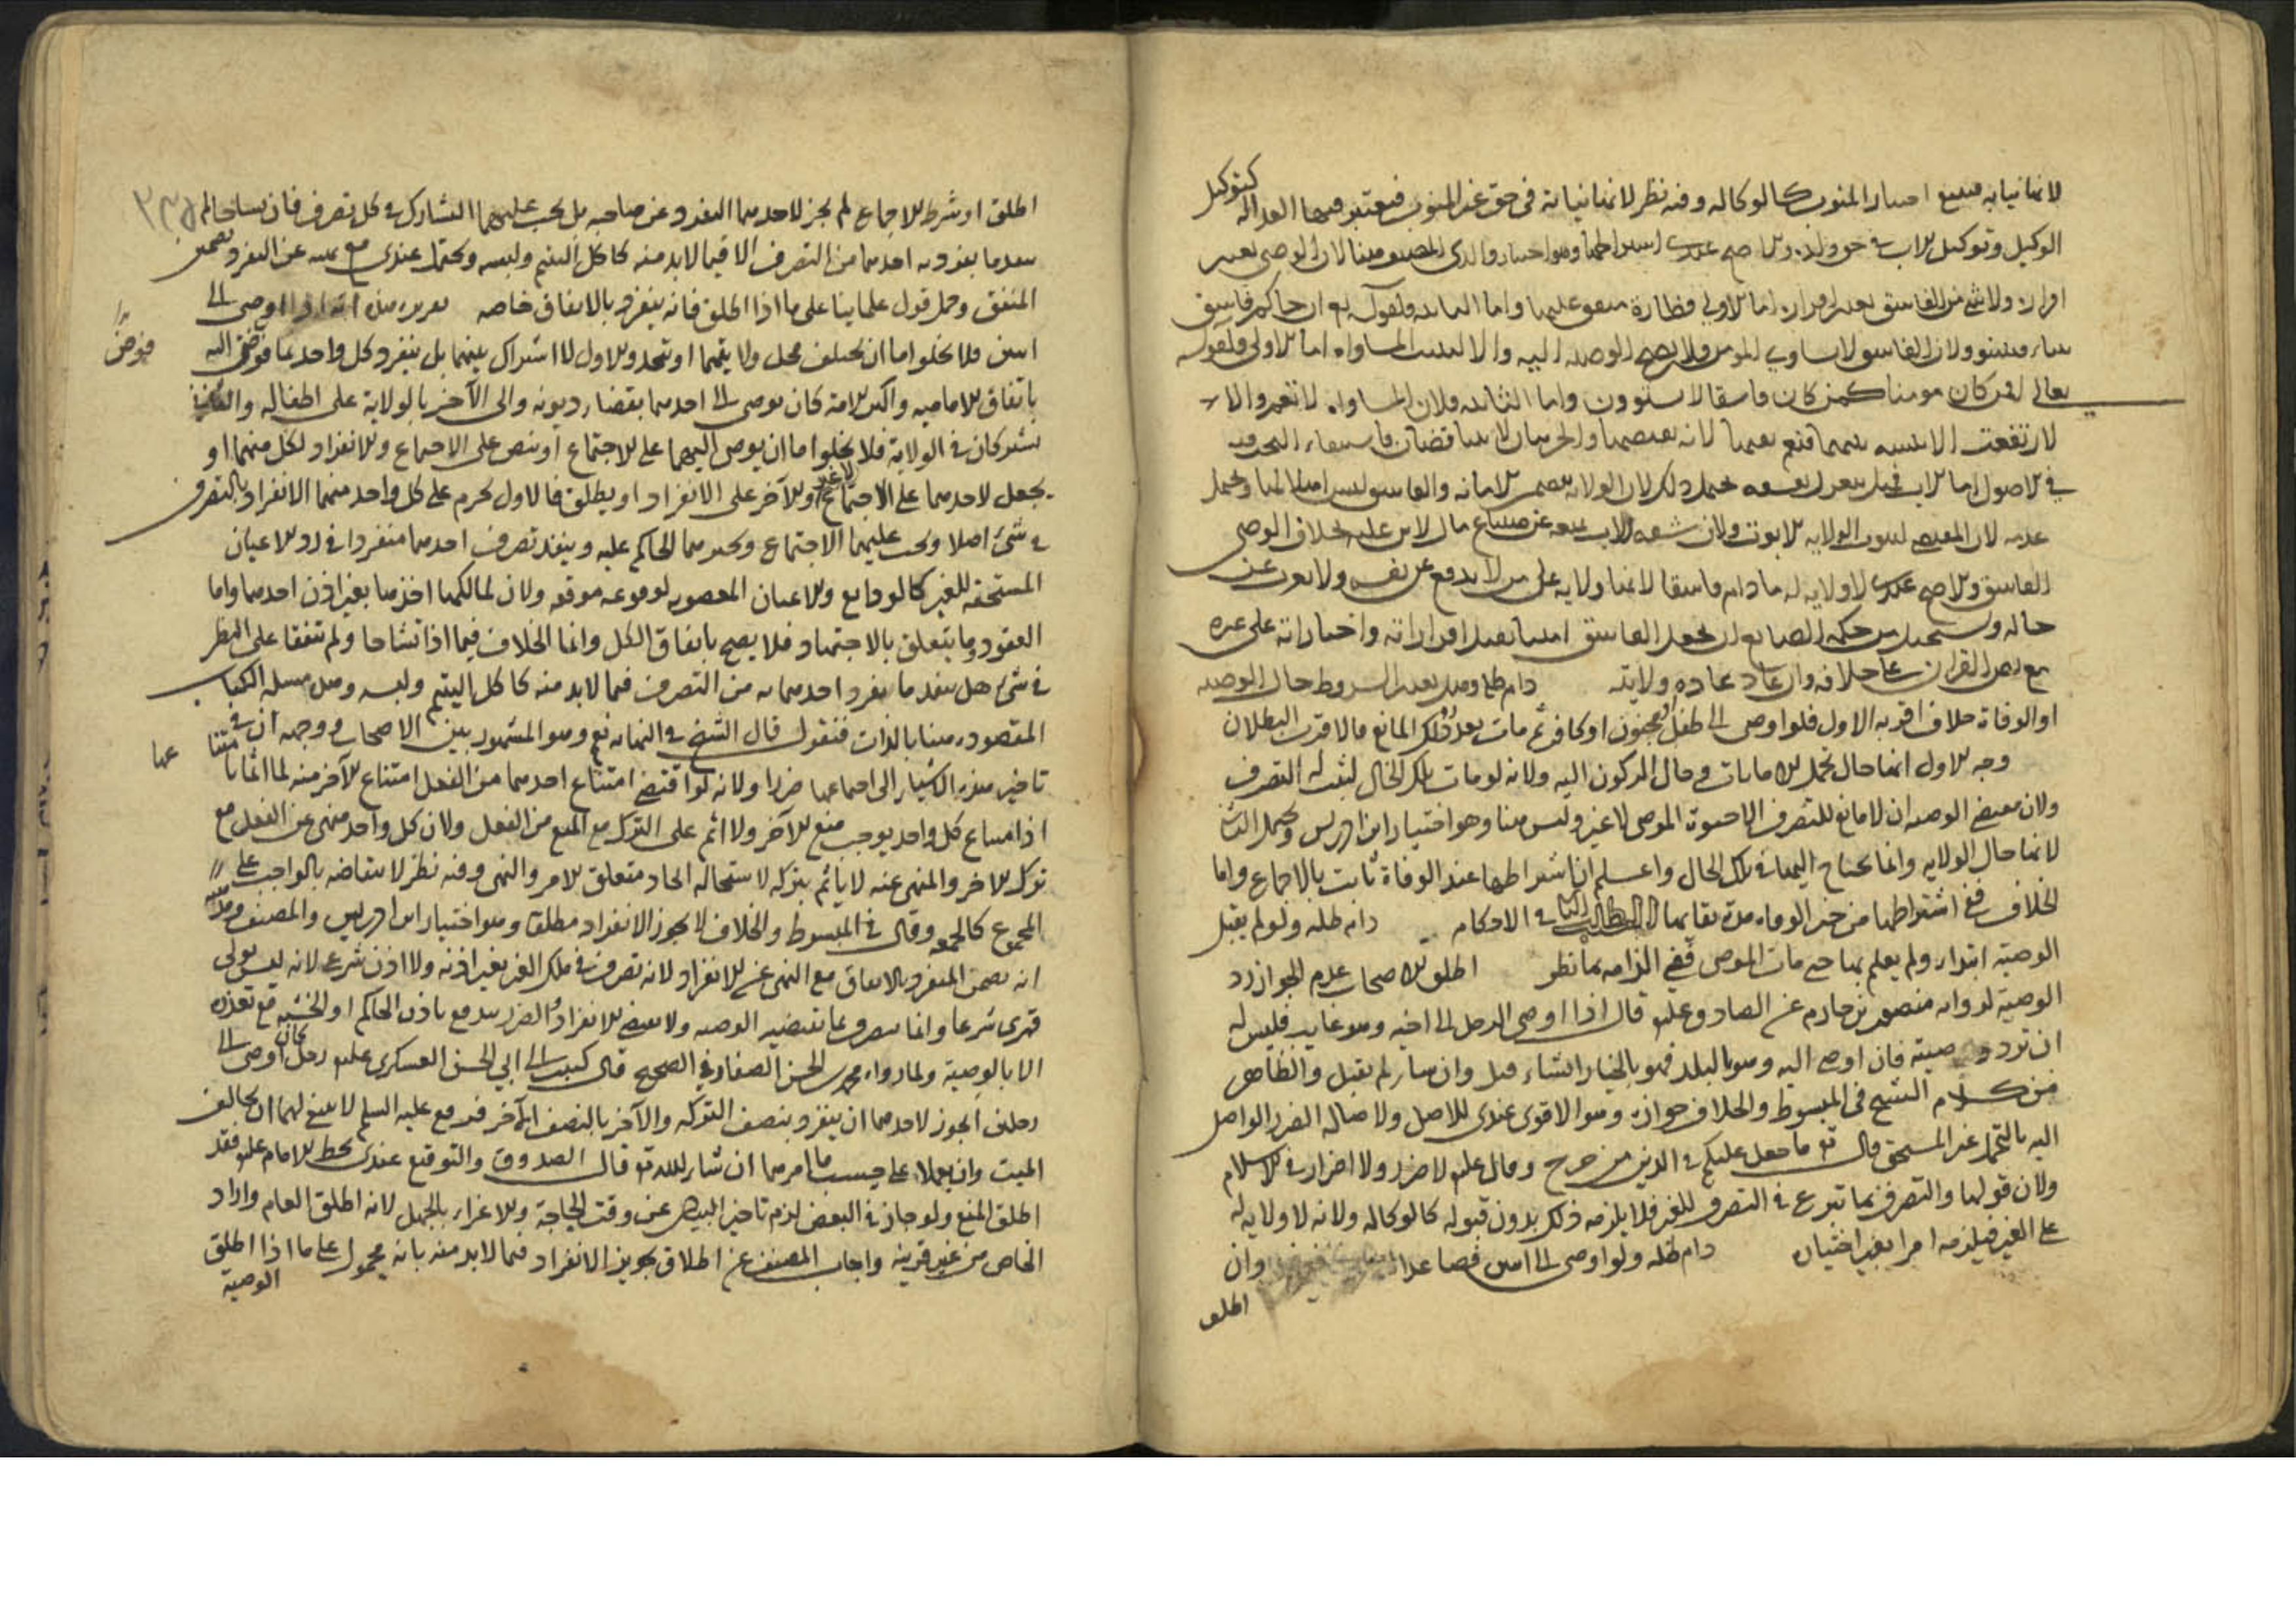 لانها نيابة فيتبع اختيار المنوب كالوكاله وفيه نظر لانها نيابة في حق غير المنوب فيعتبر فيها العداله كتوكيل
الوكيل وتوكيل الاب في حق ولده والاصح عندي اشتراطها وهو اختيار والدي المصنف هنا لان الوصي يقبل
اقراره ولا شي من الفاسق يقبل اقراره اما الاولى فظاهرة متفق عليها واما الثانيه فلقوله تع ان جاكم فاسق
بنباء فتبينوا ولان الفاسق لا يساوي المومن فلا يصح الوصيه اليه والا لثبت المساواه اما الاولى فلقوله
تعالى افمن كان مومنا كمن كان فاسقا لا يستوون واما الثانيه فلان المساواه
في الاصول اما الاب فهل ينعزل بفسقه يحتمل ذلك لان الولايه تتضمن الامانه والفاسق ليس اهلا لها ويحتمل
عدمه لان المقتضي لثبوت الولايه الابوة ولان شفقه الاب تمنعه عن تضييع مال الابن بخلاف الوصي
الفاسق والاصح عندي لا ولايه له ما دام فاسقا لانها ولايه على من لا يدفع عن نفسه ولا يعرب عن
حاله ويستحيل من حكمه الصانع ان يجعل الفاسق امينا يقبل اقراراته واخباراته على غيره
مع نص القران على خلافه وان عاد عاده ولايته دام ظله وهل يعتبر الشروط حال الوصيه
او الوفاة خلاف اقربه الاول فلو اوصى الى طفل او مجنون او كافر ثم مات بعد زوال المانع فالاقرب البطلان
وجه الاول انها حال تحمل الامانات وحال الركون اليه ولانه لو مات تلك الحال لثبت له التصرف
ولان مقتضى الوصيه ان لا مانع للتصرف الا حيوة الموصي لا غير وليس هنا وهو اختيار ابن ادريس ويحتمل الثاني
لانها حال الولايه وانما يحتاج اليها في تلك الحال واعلم ان اشتراطها عند الوفاة ثابت بالاجماع واما
الخلاف ففي اشتراطها من حين الوفاه مدة بقايها المطلب الثالث في الاحكام دام ظله ولو لم يقبل
الوصية ابتداء ولم يعلم بها حتى مات الموصي ففي الزامه بها نظر اطلق الاصحاب عدم الجواز رد
الوصية لروايه منصور بن حازم عن الصادق علم قال اذا اوصى الرجل الى اخيه وهو غايب فليس له
ان ترد وصيته فان اوصى اليه وهو بالبلد فهو بالخيار ان شاء قبل وان شاء لم يقبل والظاهر
من كلام الشيخ في المبسوط والخلاف جوازه وهو الاقوى عندي للاصل ولاصالة الضرر الواصل
اليه بالتحمل غير المستحق قال تع ما جعل عليكم في الدين من حرج وقال علم لا ضرر ولا اضرار في الاسلام
ولان قبولها والتصرف بها تبرع في التصرف للغير فلا يلزمه ذلك بدون قبوله كالوكاله ولانه لا ولايه له
على الغير فيلزمه امرا بغير اختياره دام ظله ولو اوصى الى اثنين فصاعدا وان
اطلق
اطلق او شرط الاجتماع لم يجز لاحدهما التفرد عن صاحبه بل يجب عليهما التشارك في كل تصرف فان تشاحا لم
ينفذ ما يفرد به احدهما من التصرف الا فيما لا بد منه كاكل اليتيم ولبسه ويحتمل عندي مع نهيه عن التفرد تضمين
المنفق وحمل قول علماينا على ما اذا اطلق فانه ينفرد بالانفاق خاصه تقريره هنا انه اذا اوصى الى
اثنين فلا يخلو اما ان يختلف محل ولايتهما او يتحد والاول لا اشتراك بينهما بل ينفرد كل واحد بما فوض اليه
فوض
باتفاق الاماميه واكثر الامة كان يوصي الى احدهما بقضاء ديونه والى الآخر بالولاية على اطفاله والثاني
يشتركان في الولاية فلا يخلوا اما ان يوصى اليهما على الاجتماع او ينص على الاجتماع والانفراد لكل منهما او
يجعل لاحدهما على الاجتماع لا غير وللآخر على الانفراد او يطلق فالاول يحرم على كل واحد منهما الانفراد بالتصرف
في شئ اصلا ويجب عليهما الاجتماع ويجبرهما الحاكم عليه وينفذ تصرف احدهما منفردا في رد الاعيان
المستحقه للغير كالودايع والاعيان المغصوبه لوقوعه موقعه ولان لمالكها اخذها بغير اذن احدهما واما
العقود وما يتعلق بالاجتهاد فلا يصح باتفاق الكل وانما الخلاف فيما اذا تشاحا ولم يتفقا على النظر
في شئ هل ينفذ ما يفرد احدهما به من التصرف فيما لا بد منه كاكل اليتيم ولبسه وهل مسله الكتاب
المقصوده هنا بالذات فنقول قال الشيخ في النهايه نعم وهو المشهور بين الاصحاب ووجهه ان في منعنا
عنها
تاخير هذه الاشياء الى اجتماعهما ضررا ولانه لو اقتضى امتناع احدهما من الفعل امتناع الآخر منه لما اثما
اذ امتناع كل واحد يوجب منع الآخر ولا اثم على الترك مع المنع من الفعل ولان كل واحد منهي عن الفعل مع
ترك الاخر والمنهي عنه لا ياثم بتركه لاستحاله اتحاد متعلق الامر والنهي وفيه نظر لانتقاضه بالواجب على
المجموع كالجمعه وقال في المبسوط والخلاف لا يجوز الانفراد مطلقا وهو اختيار ابن ادريس والمصنف
انه يضمن المنفرد بالانفاق مع النهي عن الانفراد لانه تصرف في ملك الغير بغير اذنه ولا اذن شرعي لانه ليس بولي
قهري شرعا وانما يتصرف بما تقتضيه الوصيه ولا مقتضى للانفراد والضرر يندفع باذن الحاكم او الحسبه مع تعذره
الا بالوصية ولما رواه محمد بن الحسن الصفار في الصحيح قال كتبت الى ابي الحسن العسكري علم رجل كان اوصى الى
رجلين ايجوز لاحدهما ان ينفرد بنصف التركه والآخر بالنصف الآخر فوقع عليه السلم لا ينبغي لهما ان يخالفا
الميت وان يعملا على حسب ما امرهما ان شاء الله تع قال الصدوق والتوقيع عندي بخط الامام علم فقد
اطلق المنع ولو جاز في البعض لزم تاخير البيان عن وقت الحاجة والاغراء بالجهل لانه اطلق العام واراد
الخاص من غير قرينه واجاب المصنف عن اطلاق تجويز الانفراد فيما لا بد منه بانه محمول على ما اذا اطلق
الوصية